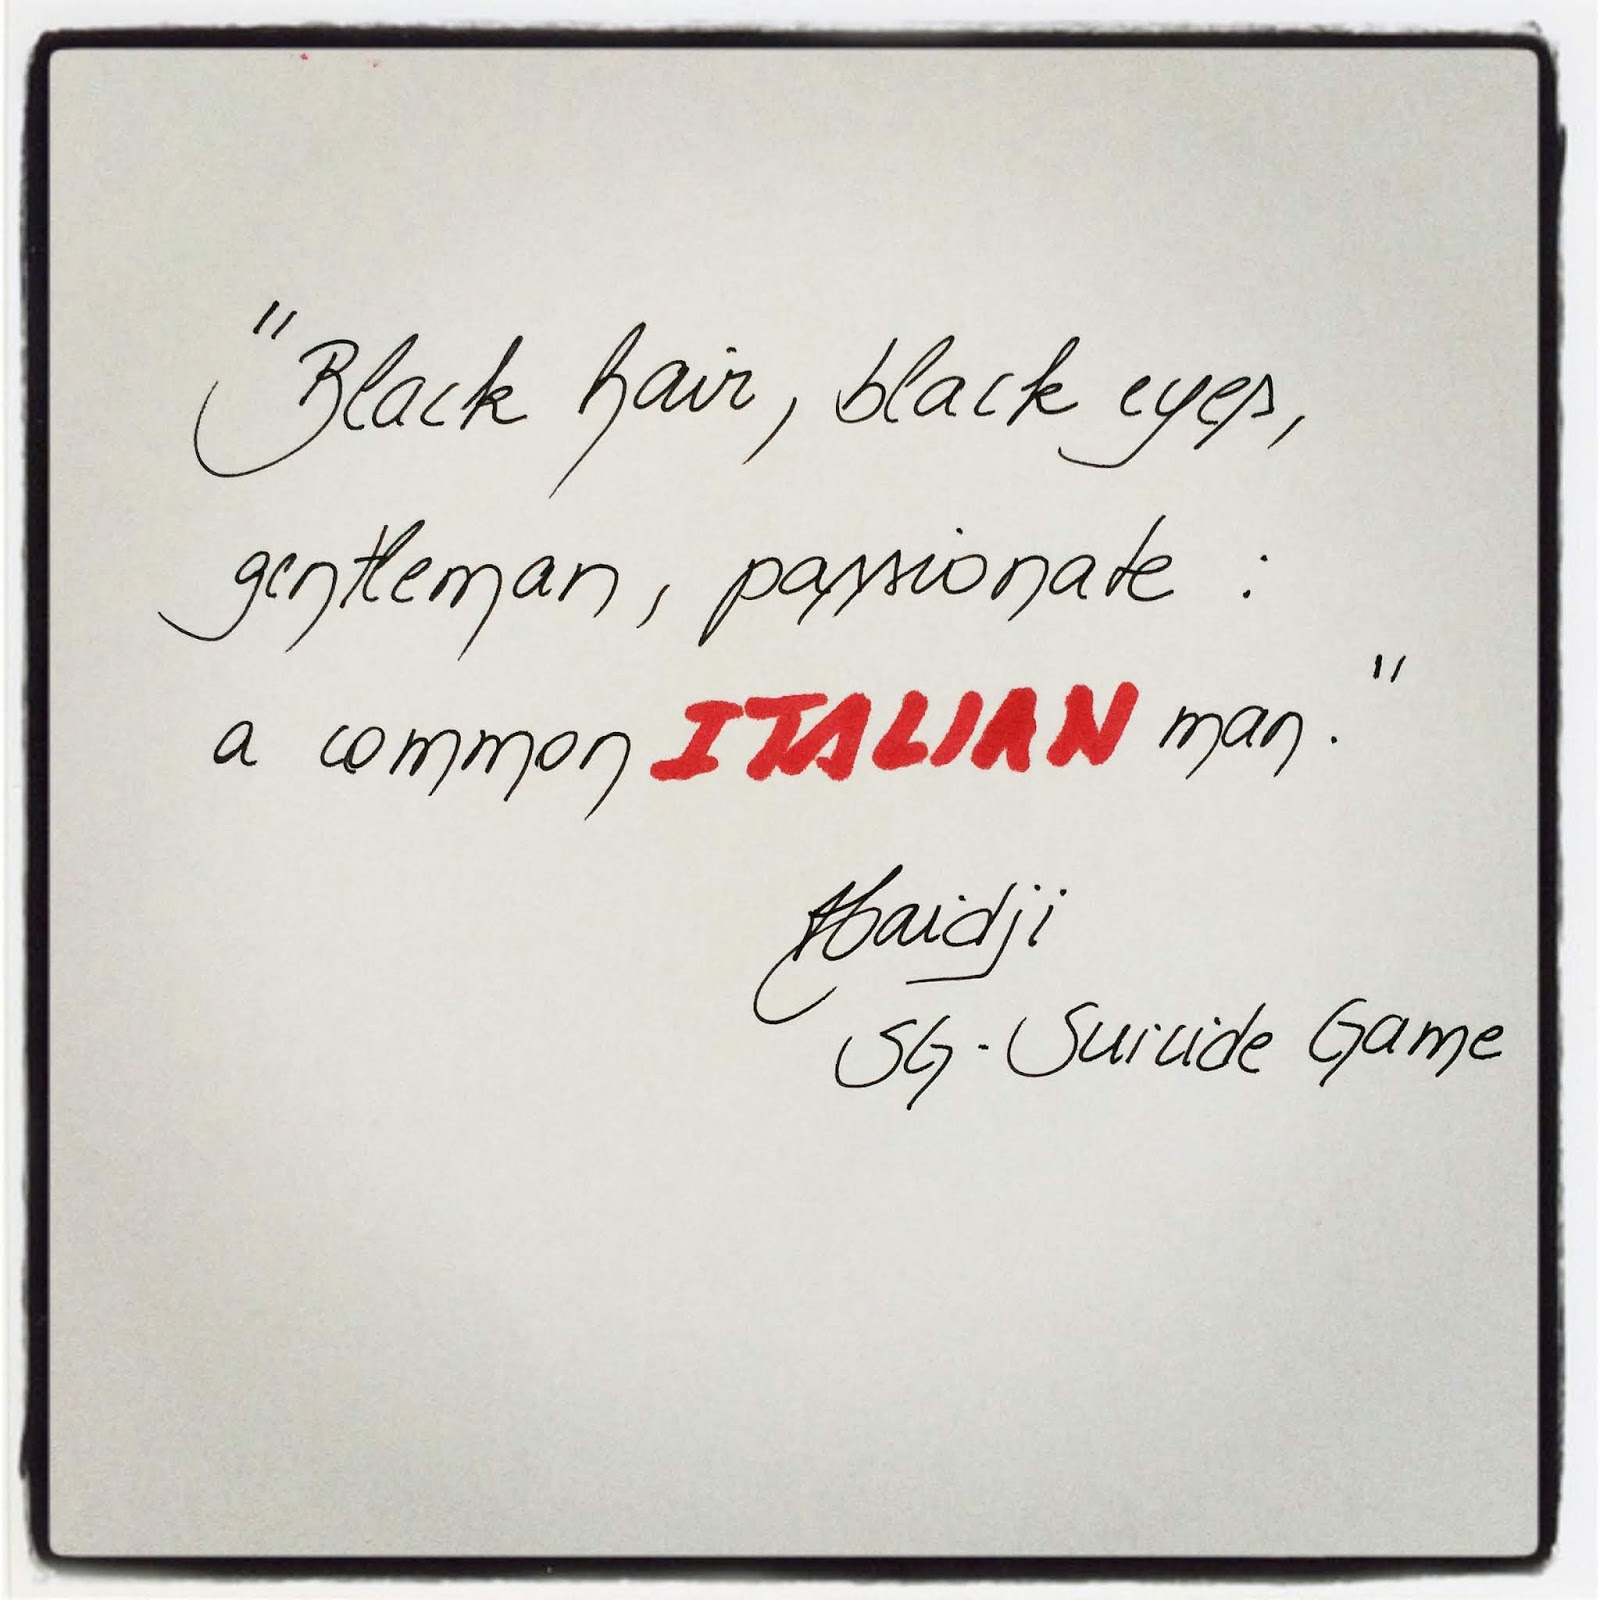 "Black hair, black eyes,
gentleman, passionate :
a common ITALIAN man."
Haidji
SG - Suicide Game